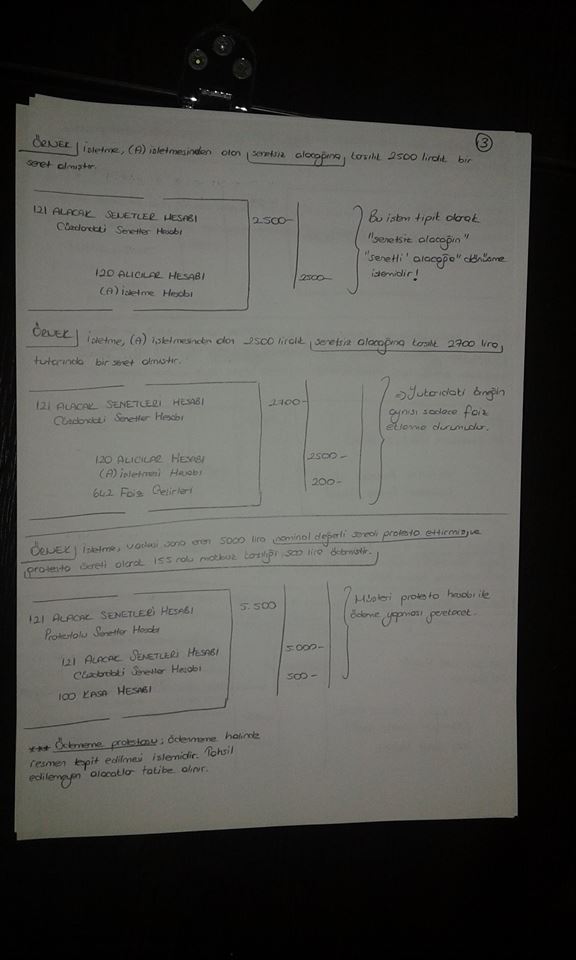 3
ÖRNEK | İşletme, (A) işletmesinden olan senetsiz alacağına karşılık 2500 liralık bir
senet almıştır.
121 ALACAK SENETLER HESABI 2500-
Cüzdandaki Senetler Hesabı
120 ALICILAR HESABI 2500-
(A) İşletme Hesabı
Bu işlem tipik olarak
"senetsiz alacağın"
"senetli" alacağa" dönüşme
işlemidir!
ÖRNEK | İşletme, (A) işletmesinden olan 2500 liralık senetsiz alacağına karşılık 2700 lira
tutarında bir senet almıştır.
121 ALACAK SENETLERİ HESABI 2700-
Cüzdandaki Senetler Hesabı
120 ALICILAR HESABI 2500-
(A) İşletmesi Hesabı
642 Faiz Gelirleri 200-
=> Yukarıdaki örneğin
aynısı sadece faiz
ekleme durumudur.
ÖRNEK | İşletme, vadesi sona eren 5000 lira nominal değerli senedi protesto ettirmiş ve
protesto ücreti olarak 155 nolu makbuz karşılığı 500 lira ödemiştir.
121 ALACAK SENETLERİ HESABI 5.500
Protestolu Senetler Hesabı
121 ALACAK SENETLERİ HESABI 5.000-
Cüzdandaki Senetler Hesabı
100 KASA HESABI 500-
Müşteri protesto hesabı ile
ödeme yapması gerekecek.
*** Ödememe protestosu; ödenmeme halinde
resmen tespit edilmesi işlemidir. Tahsil
edilemeyen alacaklar takibe alınır.